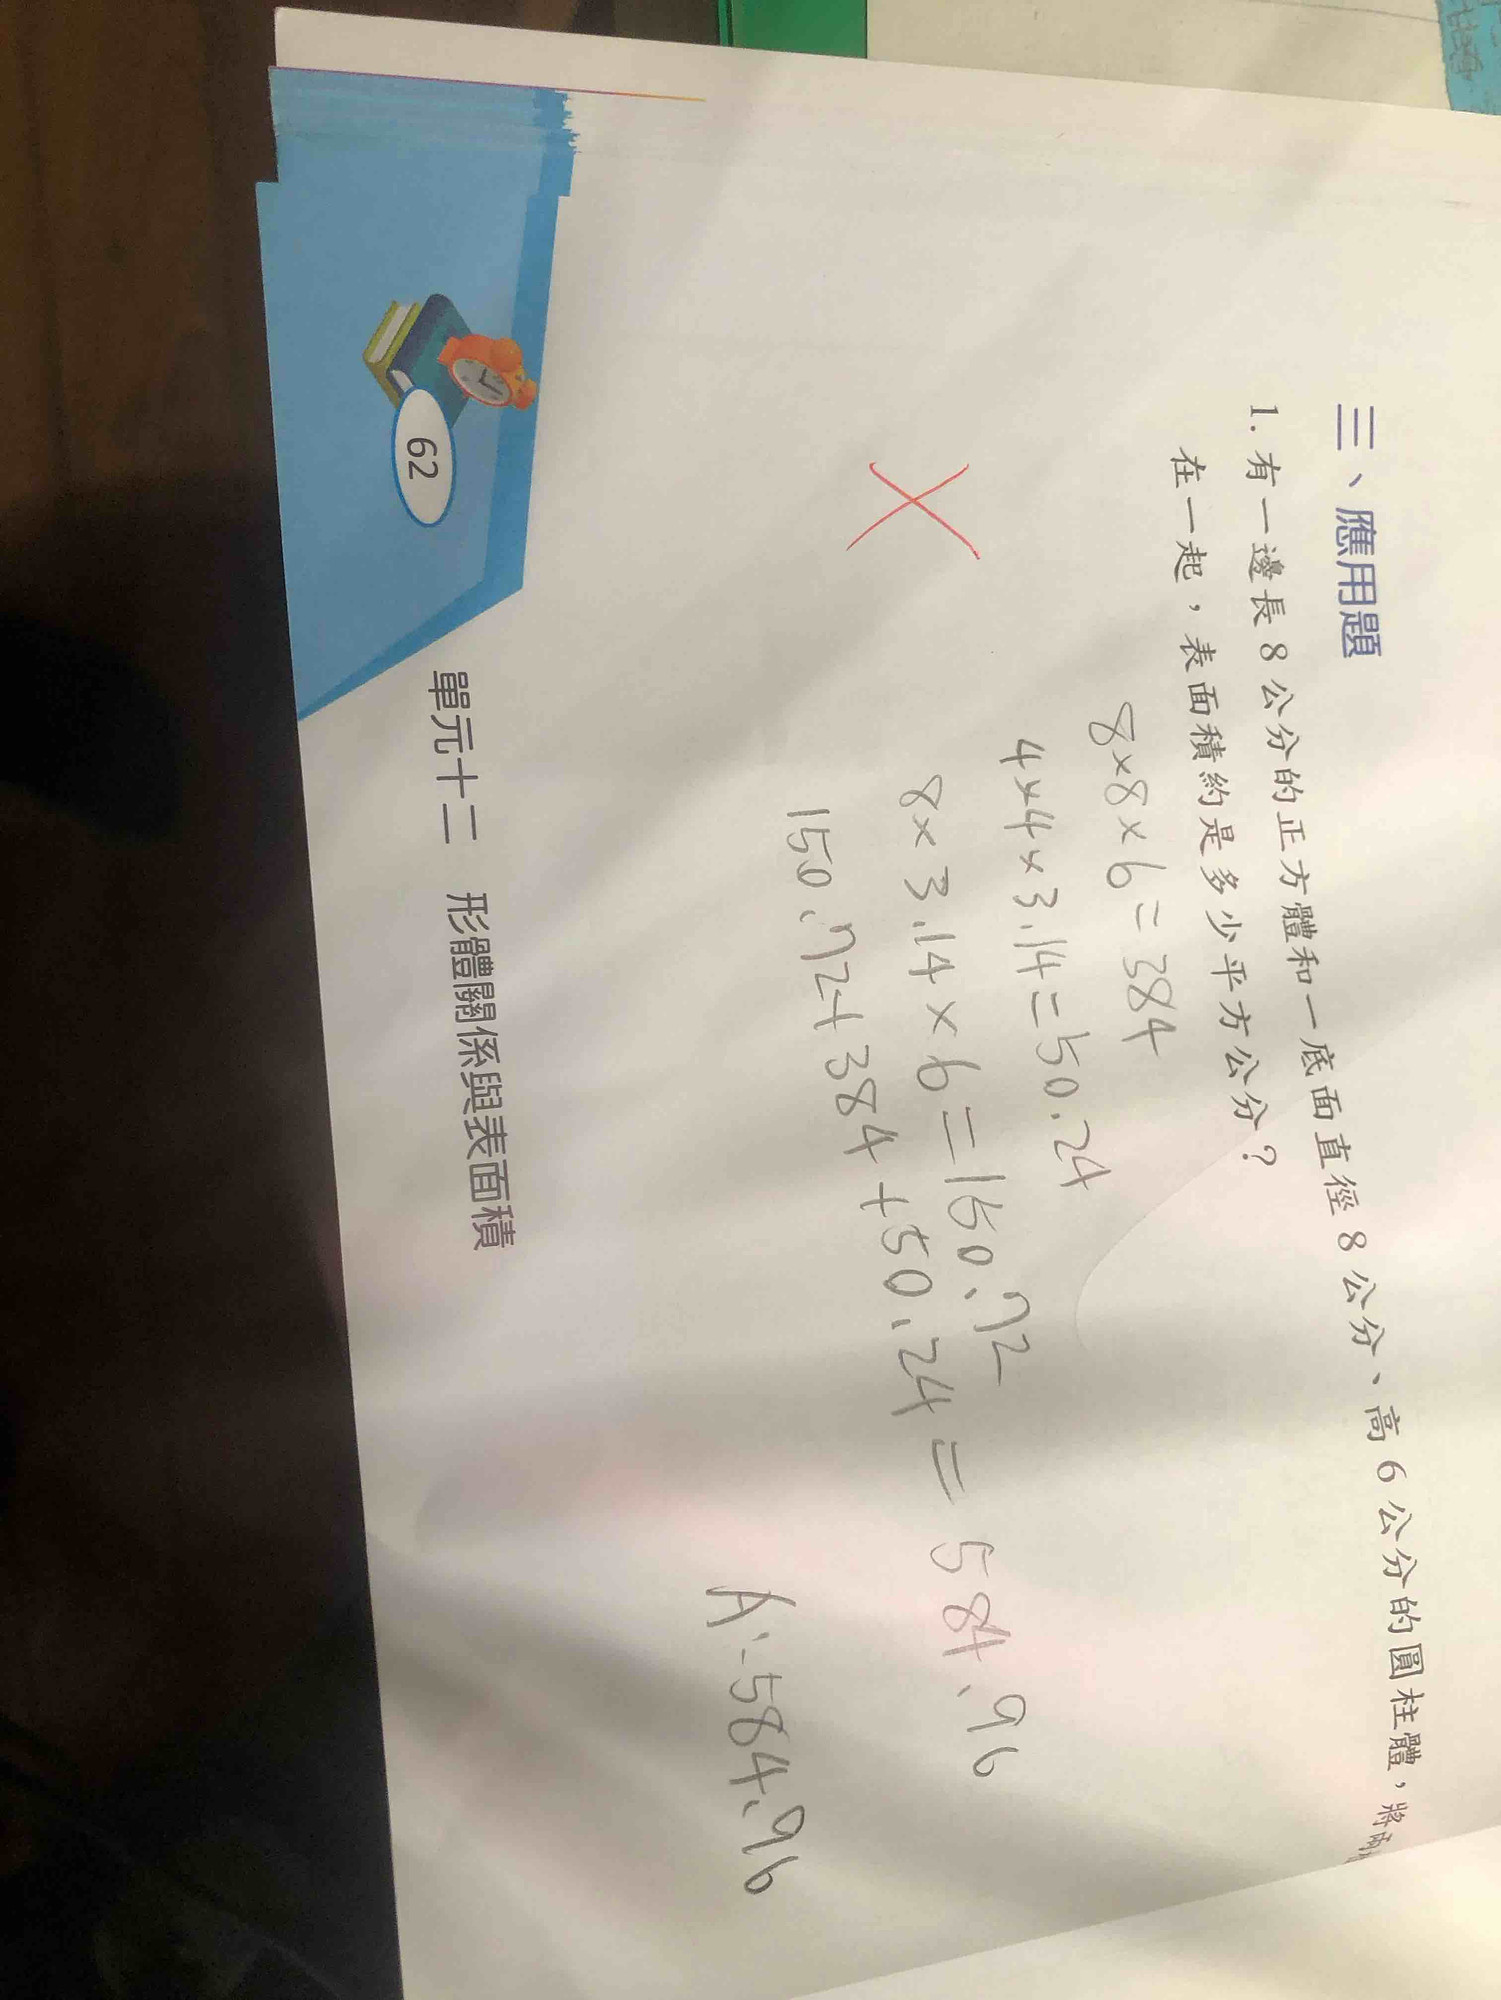 三、應用題
1. 有一邊長8公分的正方體和一底面直徑8公分、高6公分的圓柱體，將兩
在一起，表面積約是多少平方公分？
8×8×6=384
4×4×3.14=50.24
8×3.14×6=150.72
150.72+384+50.24=584.96
A:584.96
62
單元十二 形體關係與表面積